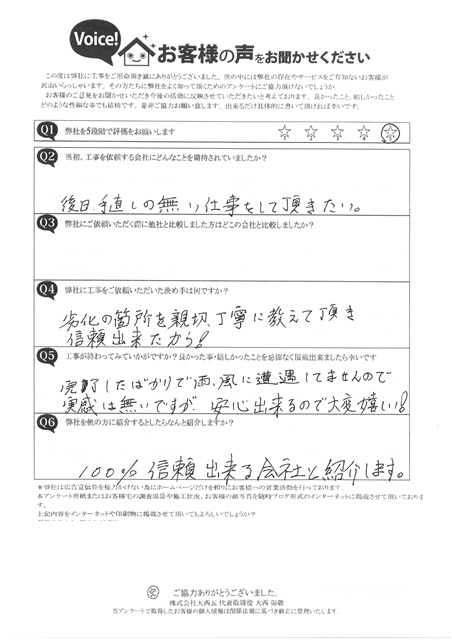 Voice!
お客様の声をお聞かせください
この度は弊社に工事をご用命頂き誠にありがとうございました。世の中には弊社の存在やサービスをご存知ないお客様が
沢山いらっしゃいます。その方たちに弊社をよく知って頂くためのアンケートにご協力頂けないでしょうか。
お客様のご意見をお聞かせいただき今後の活動に反映させていただきたいと考えております。良かったこと、嬉しかったこと
どのような些細な事でも結構です。是非ご協力お願い致します。出来るだけ具体的に書いて頂ければ幸いです。
Q1 弊社を5段階で評価をお願いします
1 2 3 4 5
Q2 当初、工事を依頼する会社にどんなことを期待されていましたか？
後日、手直しの無い仕事をして頂きたい。
Q3 弊社にご依頼いただく際に他社と比較しました方はどこの会社と比較しましたか？
Q4 弊社に工事をご依頼いただいた決め手は何ですか？
劣化の箇所を親切、丁寧に教えて頂き
信頼出来たから!
Q5 工事が終わってみていかがですか？良かった事・嬉しかったことを忌憚なく頂戴出来ましたら幸いです
完了したばかりで雨、風に遭遇してませんので
実感は無いですが、安心出来るので大変嬉しい!
Q6 弊社を他の方に紹介するとしたらなんと紹介しますか？
100% 信頼出来る会社と紹介します。
＊弊社は広告宣伝費を極力かけない為にホームページだけを頼りにお客様への営業活動を行っております。
本アンケート用紙またはお客様宅の調査風景や施工状況、お客様の顔写真を随時ブログ形式のインターネットに掲載させて頂いております。
上記内容をインターネットや印刷物に掲載させて頂いてもよろしいでしょうか？
ご協力ありがとうございました。
株式会社大西瓦 代表取締役 大西 崇敬
当アンケートで取得したお客様の個人情報は関係法規に基づき厳正に管理いたします。